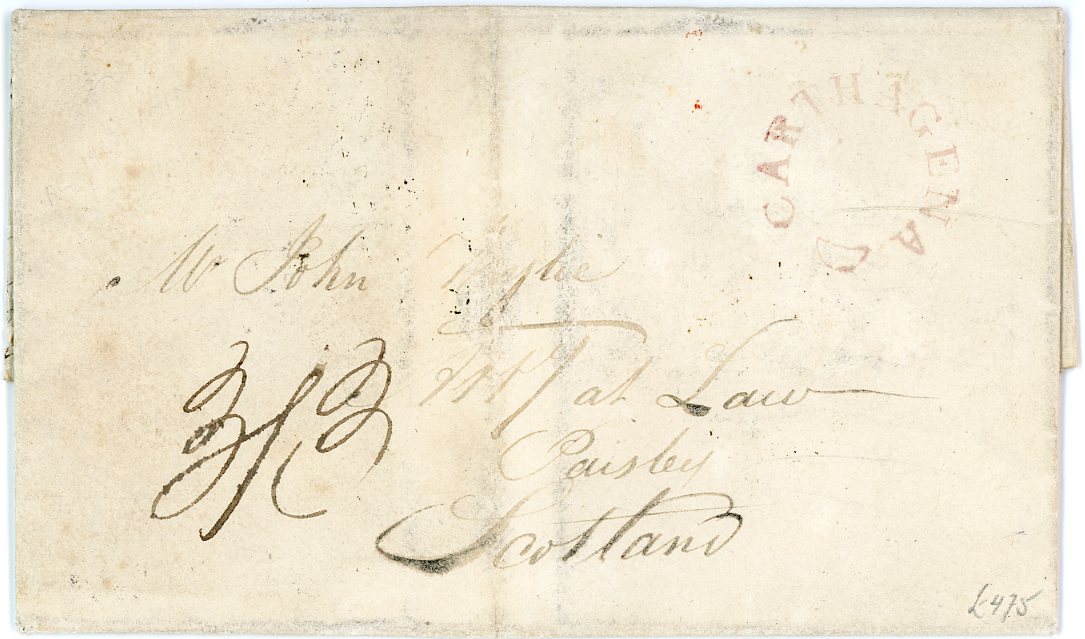 CARTHAGENA
Mr John Wylie
at Law
Paisley
Scotland
3/3
£475